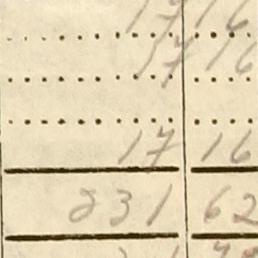 17 16
17 16
17 16
231 62